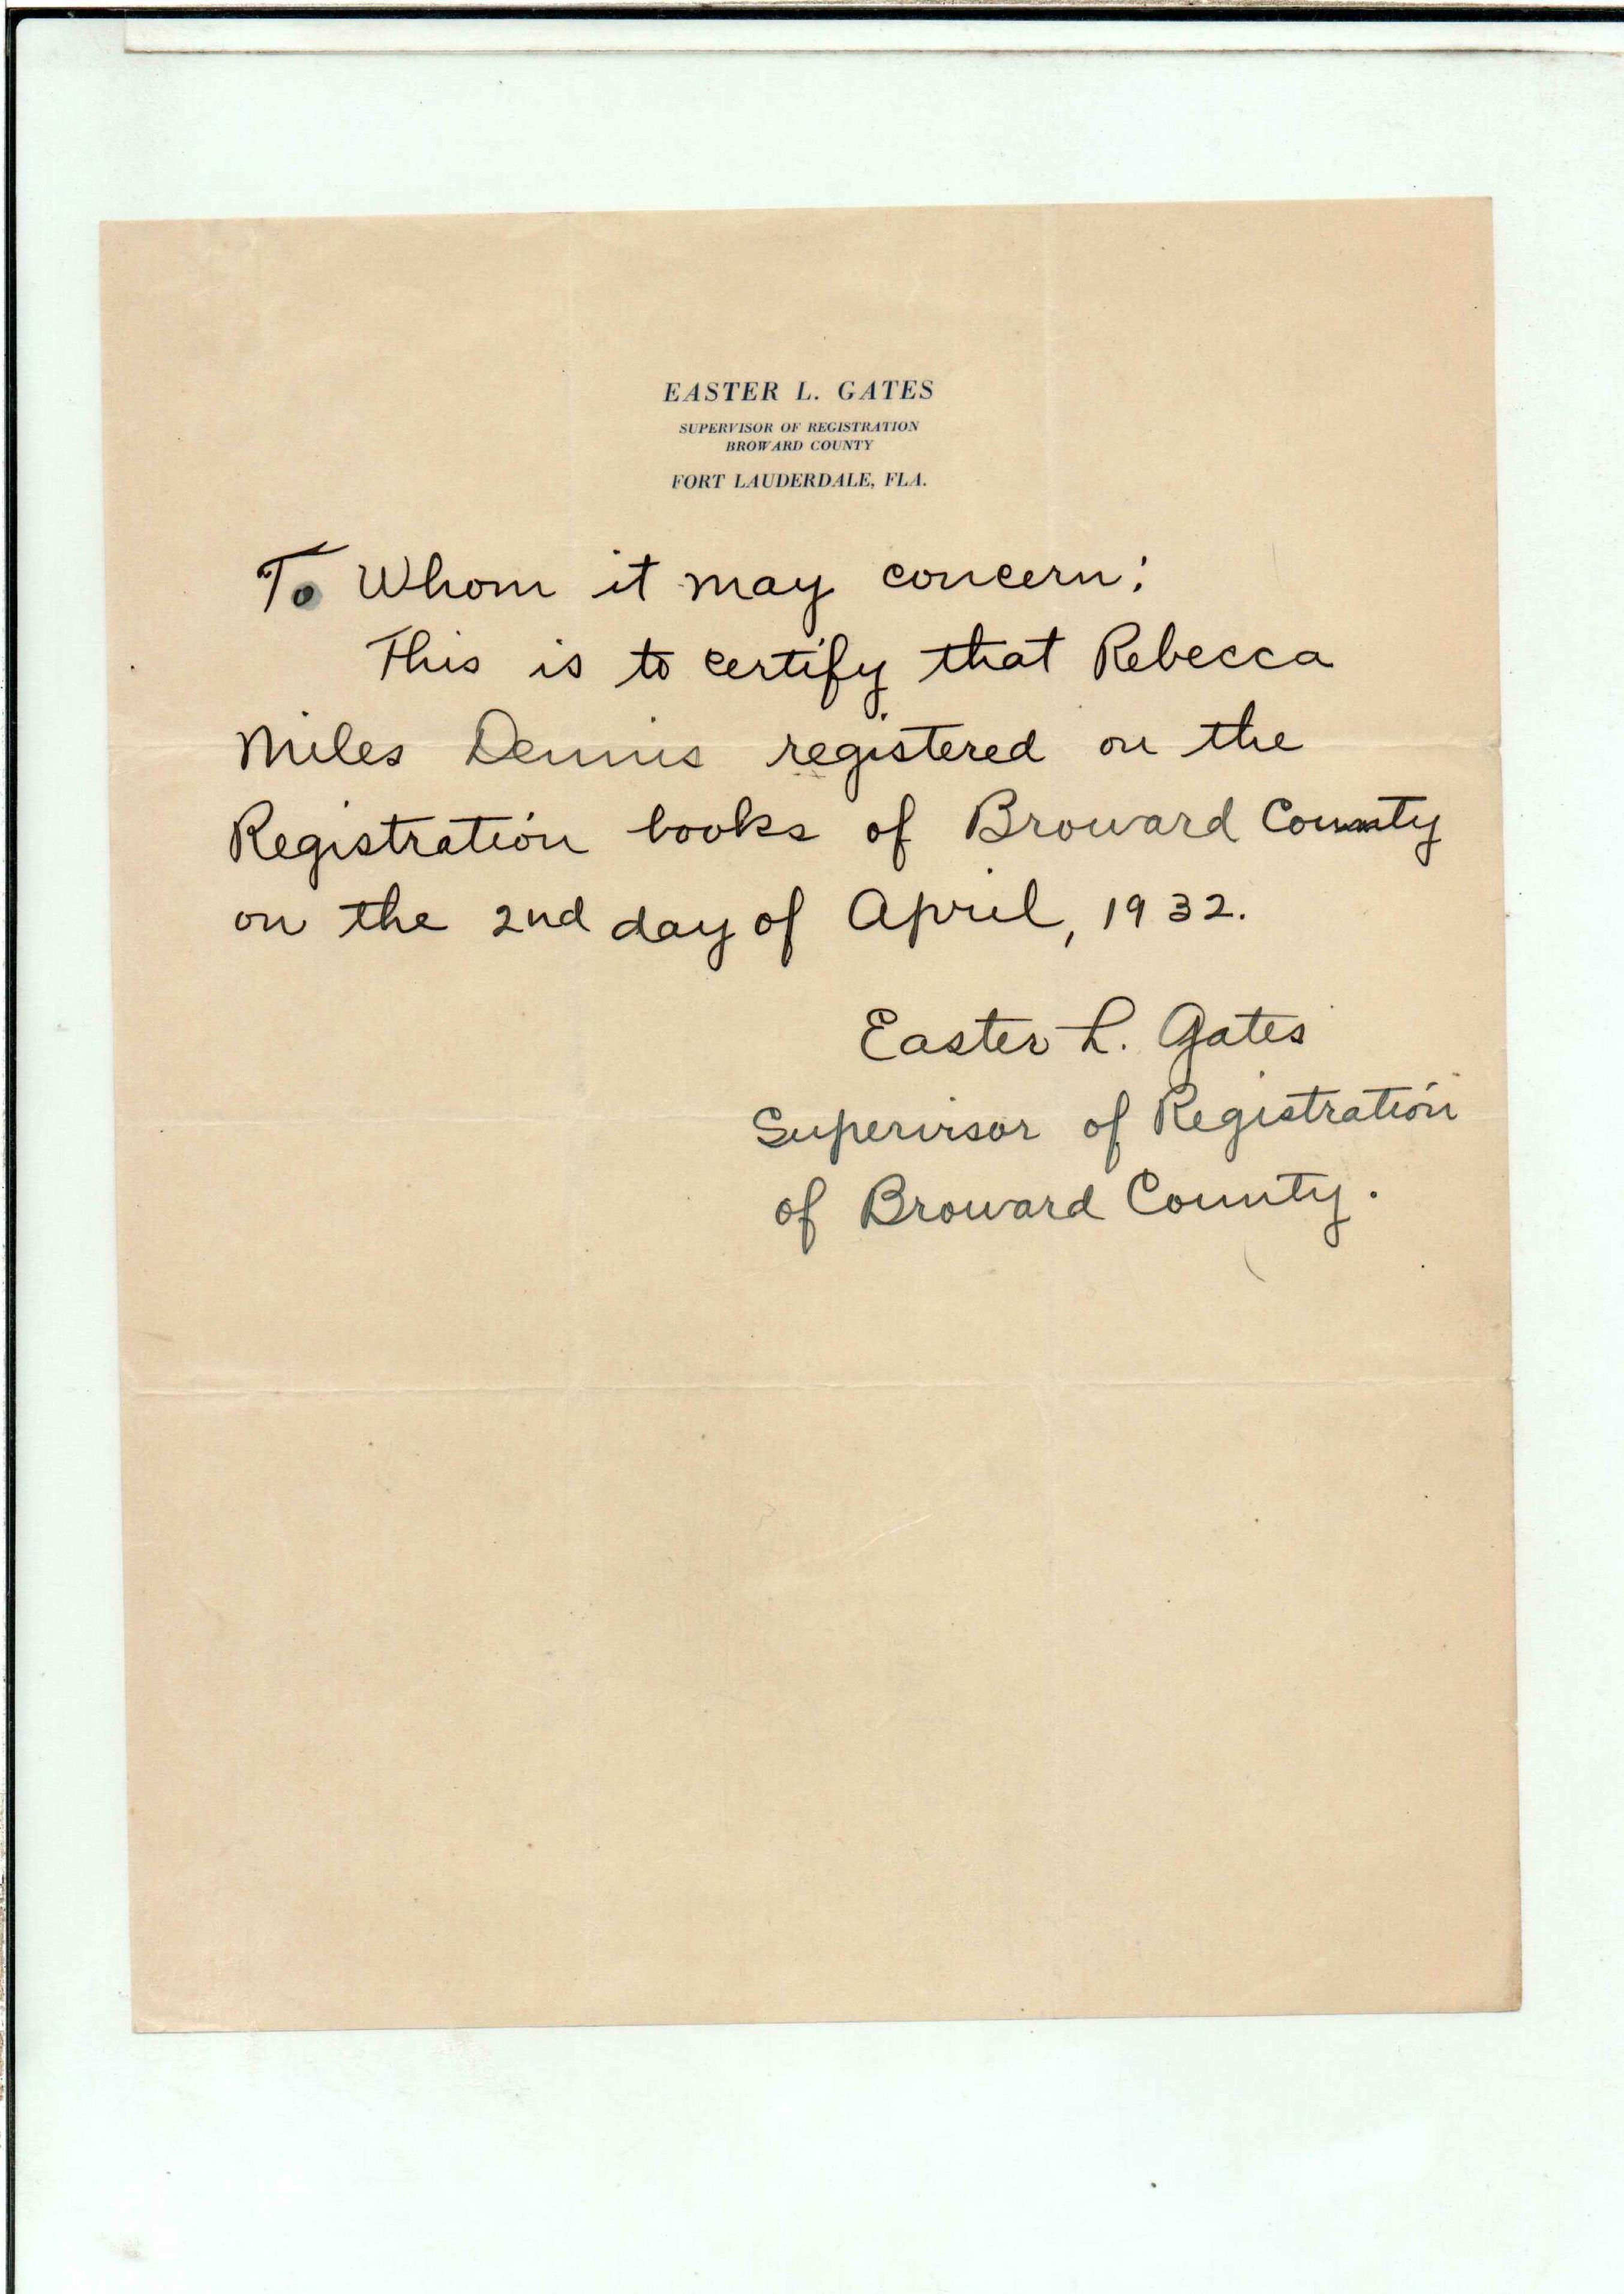 EASTER L. GATES
SUPERVISOR OF REGISTRATION
BROWARD COUNTY
FORT LAUDERDALE, FLA.
To Whom it may concern:
This is to certify that Rebecca
Miles Dennis registered on the
Registration books of Broward County
on the 2nd day of April, 1932.
Easter L. Gates
Supervisor of Registration
of Broward County.